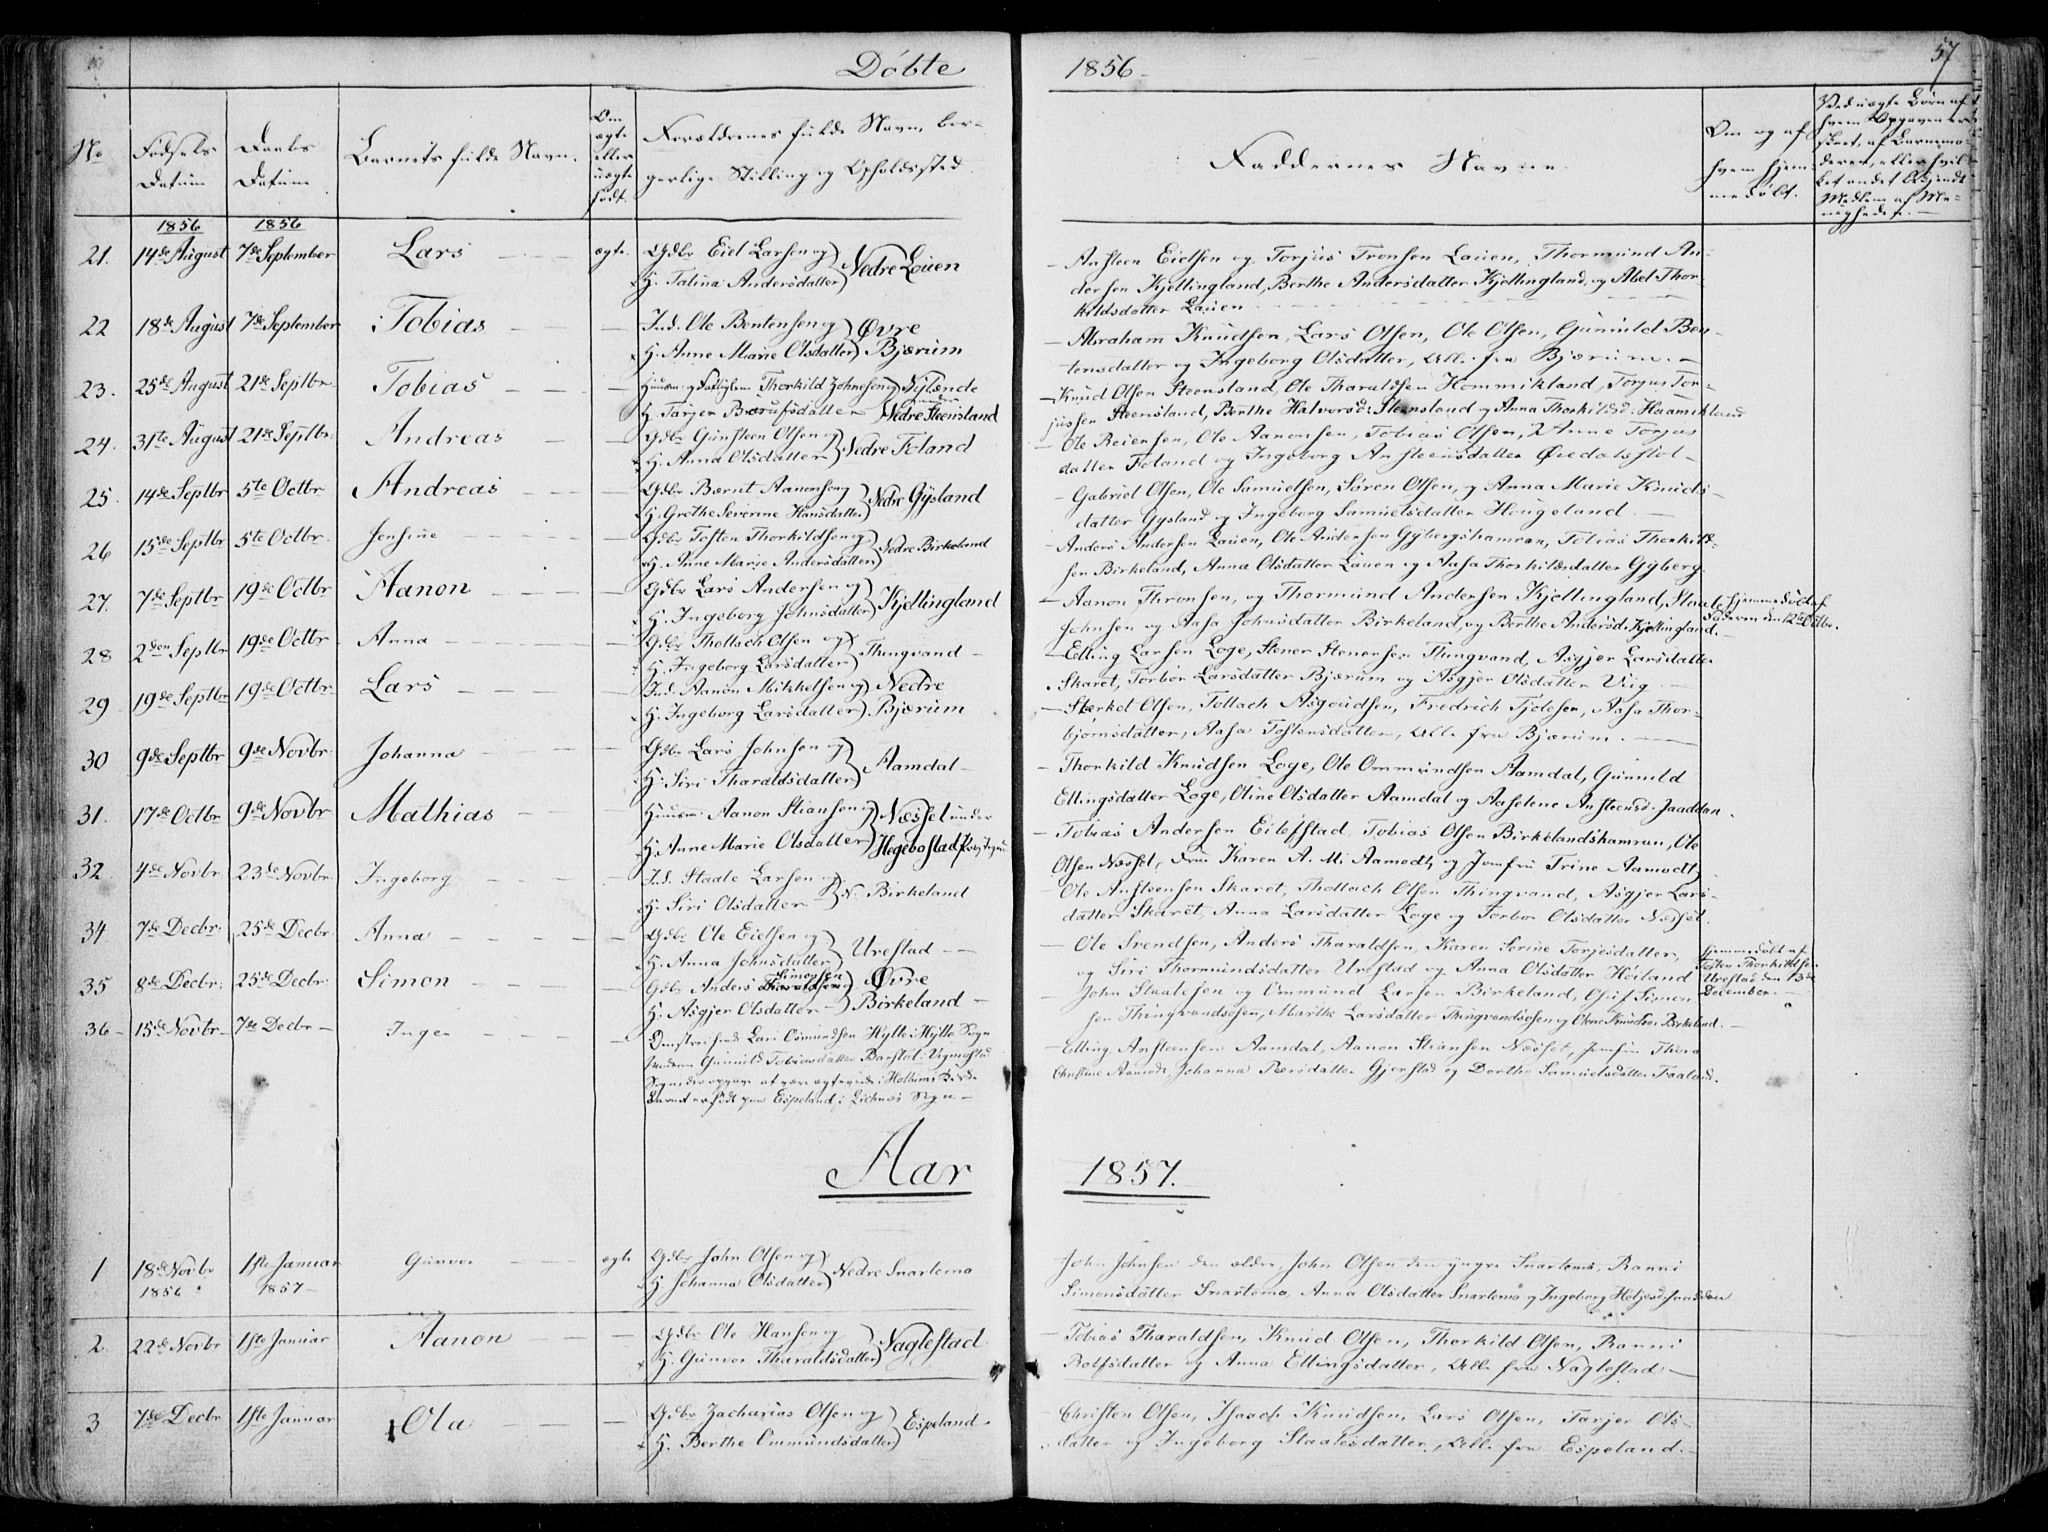 Döbte 1856 57
No
Fødsels Datum
Daabs Datum
Barnets fulde Navn.
Om ægte eller uægte født.
Forældrenes fulde Navn, borgerlige Stilling og Opholdssted.
Faddernes Navne.
Om og af hvem hjemmedøbt.
1856 1856
21. 14de August 7de September Lars ægte. Gdbr Eiel Larsen og Nedre Lauen
H. Talina Andersdatter
Ansteen Eielsen og Torjus Tronsen Lauen, Thormund An-
dersen Kjellingland, Berthe Andersdatter Kjellingland, og Abel Thor-
kildsdatter Lauen
22 18de August 7de September Tobias Ind. Ole Bentensen og Øvre
H. Anne Marie Olsdatter Bjærum
Abraham Knudsen, Lars Olsen, Ole Olsen, Gunuld Ben-
tensdatter og Ingeborg Olsdatter, Alle fra Bjærum.
23. 25de August 21de Septbr Tobias Thorkild Johnsen og Nylænde under
H. Tarjer Nedre Steensland
Knud Olsen Steensland, Ole Tharaldsen Hommikland, Torjus Tor-
jussen Steensland, Berthe Halvorsd: Steensland og Anna Thorkildsd: Haamikland
24. 31te August 21de Septbr. Andreas Gdbr Gunsteen Olsen og Nedre Foland
H. Anna Olsdatter
Ole Reiersen, Ole Aanonsen, Tobias Olsen, Anne Torjus
datter Foland og Ingeborg Ansteensdatter
25. 14de Septbr 5te Octbr Andreas Gdbr Bærnt Aanensen og Nedre Gysland
H. Grethe Severine Hansdatter
Gabriel Olsen, Ole Samuelsen, Søren Olsen, og Anna Marie Knuds-
datter Gysland og Ingeborg Samuelsdatter Hougeland.
26 15de Septbr 5te Octbr. Jensine Gdbr Tosten Thorkildsen og Nedre Birkeland
H. Anne Marie Andersdatter
Anders Andersen Lauen, Ole Andersen Gybergshamran, Tobias Thorkild-
sen Birkeland, Anna Olsdatter Lauen og Aasa Thorkildsdatter Gyberg.
27. 7de Septbr 19de Octbr Aanon Gdbr Lars Andersen og Kjellingland
H. Ingeborg Johnsdatter
Aanon Thronsen, og Thormund Andersen Kjellingland, Staale
Johnsen og Aasa Johnsdatter Birkeland, og Berthe Andersd. Kjellingland.
Hjemmedøbt af Faderen den 12te Octbr.
28 2den Septbr 19de Octbr Anna Gdbr Thollach Olsen og Thingvand
H. Ingeborg Larsdatter
Elling Larsen Loge, Stener Stenersen Thingvand, Asgjer Larsdatter
Skaret, Torbor Larsdatter Bjærum og Asgjer Olsdatter Viig.
29 19de Septbr 19de Octbr Lars Ind. Aanon Mikkelsen og Nedre
H. Ingeborg Larsdatter Bjærum
Stærket Olsen, Tollach Asgoudsen, Fredrich Tjølesen, Aasa Thor-
bjørnsdatter, Aasa Tostensdatter, Alle fra Bjærum.
30 9de Septbr 9de Novbr. Johanna Gdbr Lars Johnsen og Aamdal
H. Siri Tharaldsdatter
Thorkild Knudsen Loge, Ole Ommundsen Aamdal, Gunuld
Ellingsdatter Loge, Oline Olsdatter Aamdal og Aaselene Ansteensd. Jaaddan.
31. 17de Octbr 9de Novbr Mathias Huusm: Aanon Stiansen og Næsset under
H. Anne Marie Olsdatter Hegebostad
Tobias Andersen Eilefstad, Tobias Olsen Birkelandshamran, Ole
Olsen Næsset, Fru Karen A. M. Aamodt, og Jomfru Trine Aamodt.
32. 4de Novbr 23de Novbr Ingeborg Ind. Staale Larsen og N. Birkeland
H. Siri Olsdatter
Ole Ansteensen Skaret, Thollach Olsen Thingvand, Asgjer Lars-
datter Skaret, Anna Larsdatter Loge og Torbor Olsdatter Næsset.
34 7de Decbr. 25de Decbr Anna Gdbr Ole Eielsen og Urestad
H. Anna Johnsdatter
Ole Svendsen, Anders Tharaldsen, Karen Serine Torjesdatter,
og Siri Thormundsdatter Urestad og Anna Olsdatter Høiland
Hjemmedøbt af Tosten Thorkildsen Urestad den 13de December.
35 8de Decbr. 25de Decbr. Simon Gdbr Anders Simonsen Øvre
H. Asgjer Olsdatter Birkeland
John Staalesen og Ommund Larsen Birkeland, Oluf Simon-
sen Thingvandsosen, Marthe Larsdatter Thingvandsosen og Olene Knudsdr Birkeland.
36 15de Novbr 7de Decbr Inger Lars Osmundsen Hylle i Hylle Sogn
Gunuld Tobiasdatter Barstøl i Vigmostad
Sogn, der opgive at være ægteviede i Hollums Kirke
Barnet er født paa Espeland i Liknæs Sogn
Elling Ansteensen Aamdal, Aanon Stiansen Næsset, Jomfru Thora
Christine Aamodt, Johanna Peersdatter Gjerstad og Dorthe Samuelsdatter Faaland.
Aar 1857.
1 18de Novbr 1856 1ste Januar 1857 Gunvor ægte Gdbr John Olsen og Nedre Snartemo
H. Johanna Olsdatter
John Johnsen den ældre, John Olsen den yngre Snartemo, Ranni
Simonsdatter Snartemo, Anna Olsdatter Snartemo og Ingeborg
2. 22de Novbr 1ste Januar Aanon Gdbr Ole Hansen og Naglestad
H. Gunvor Tharaldsdatter
Tobias Tharaldsen, Knud Olsen, Thorkild Olsen, Ranni
Rolfsdatter og Anna Ellingsdatter, Alle fra Naglestad
3 7de Decbr 1ste Januar Ola Gdbr Zacharias Olsen og Espeland
H. Berthe Ommundsdatter
Christen Olsen, Isaach Knudsen, Lars Olsen, Tarjer Ols-
datter og Ingeborg Staalesdatter, Alle fra Espeland.